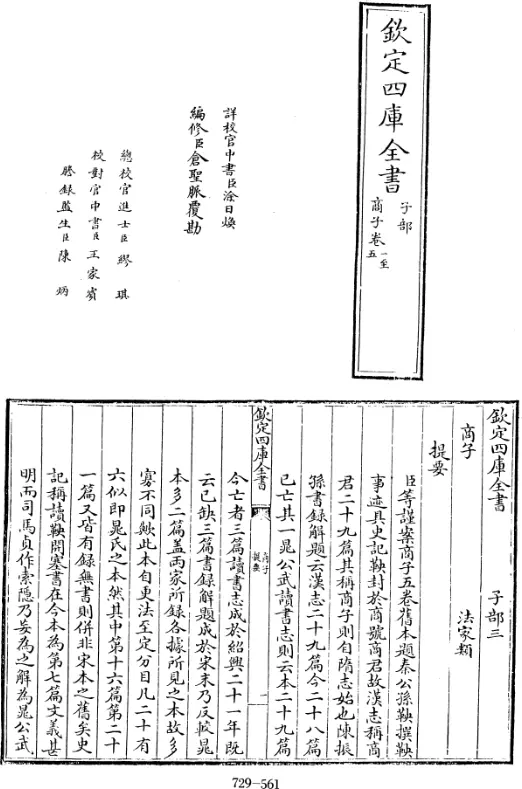 欽定四庫全書
子部
商子卷一至五
詳校官中書臣涂日煥
編修臣倉聖脈覆勘
總校官進士臣繆琪
校對官中書臣王家賓
謄錄監生臣陳炳
欽定四庫全書 子部三
商子 法家類
提要
臣等謹案商子五卷舊本題秦公孫鞅撰鞅
事迹具史記鞅封於商號商君故漢志稱商
君二十九篇其稱商子則自隋志始也陳振
孫書録解題云漢志二十九篇今二十八篇
已亡其一晁公武讀書志則云本二十九篇
欽定四庫全書
商子
提要
今亡者三篇讀書志成於紹興二十一年既
云已缺三篇書録解題成於宋末乃反較晁
本多二篇蓋兩家所録各據所見之本故多
寡不同歟此本自更法至定分目凡二十有
六似即晁氏之本然其中第十六篇第二十
一篇又皆有録無書則併非宋本之舊矣史
記稱讀鞅開塞書在今本為第七篇文義甚
明而司馬貞作索隱乃妄為之解為晁公武
729–561